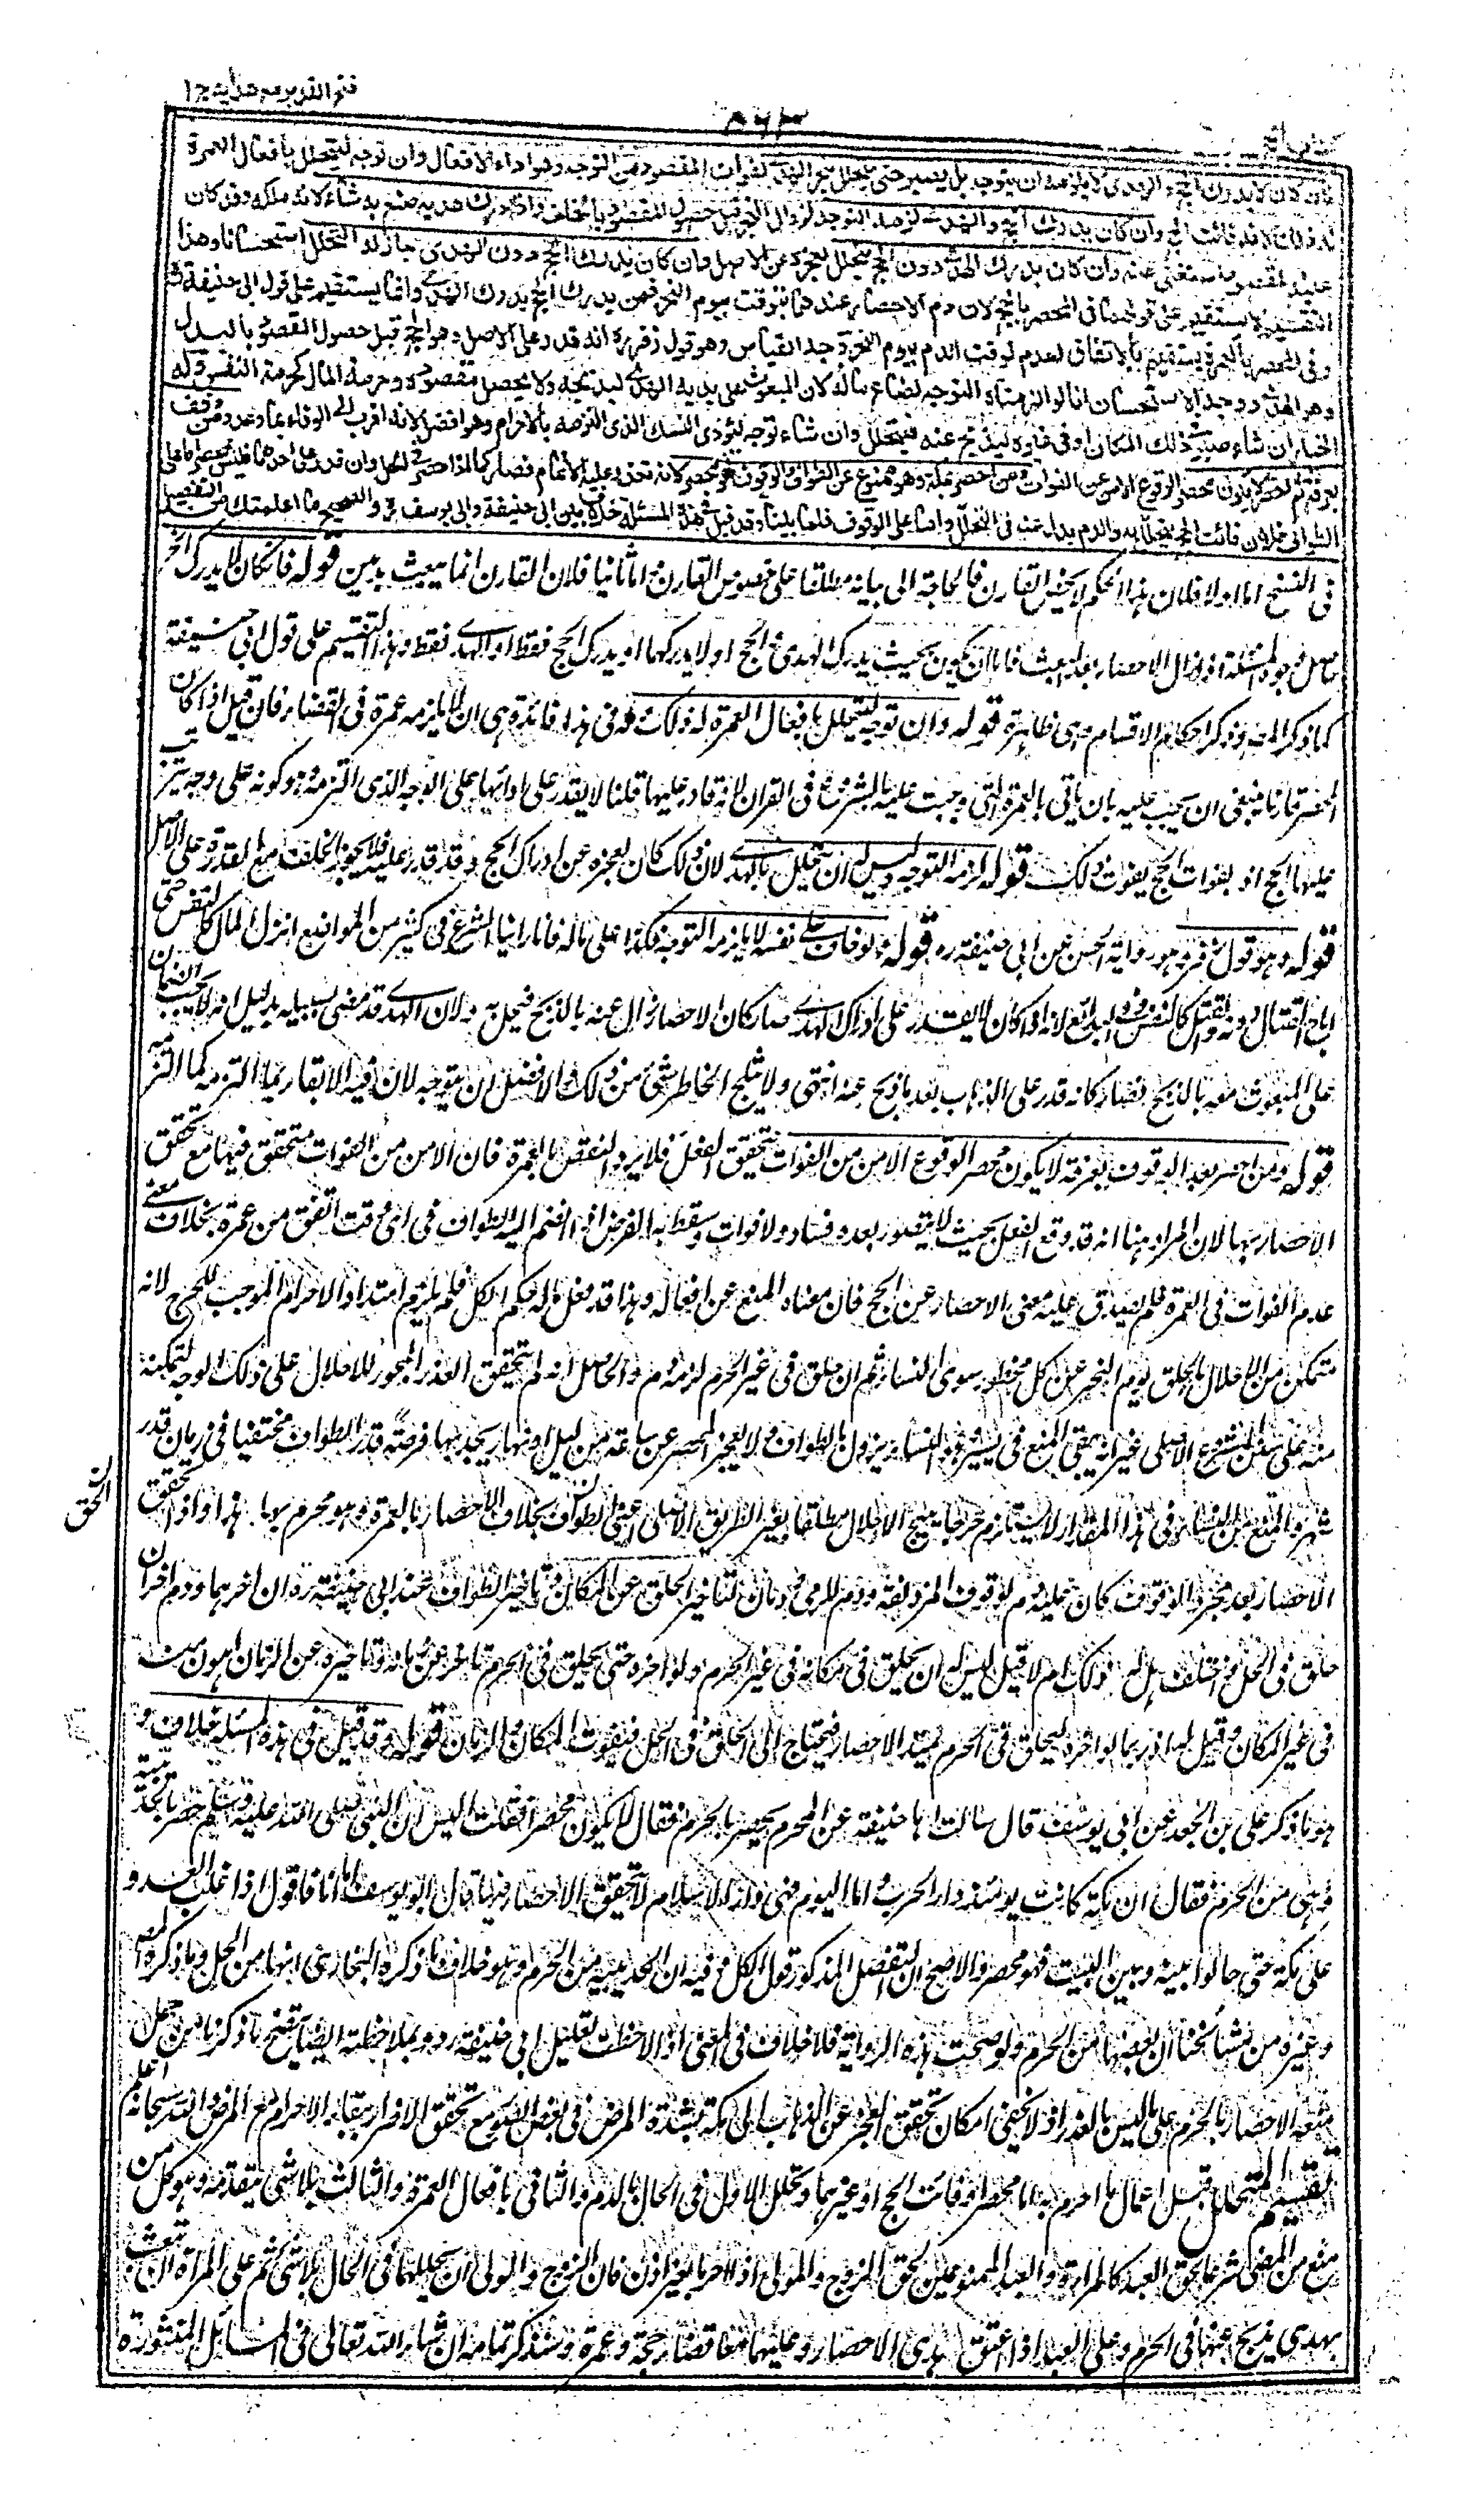 فتح القدير مع هدايه ج ١
فان كان لا يدرك الحج والهدى لا يلزمه ان يتوجه بل يصبر حتى يتحلل بنحر الهدى لفوات المقصود من التوجه وهو اداء الافعال وان توجه ليتحلل بافعال العمرة
له ذلك لانه فائت الحج وان كان يدرك الحج والهدى لزمه التوجه لزوال العجز قبل حصول المقصود بالخلف واذا ادرك هديه صنع به ما شاء لانه ملكه وقد كان
عينه لمقصود استغنى عنه وان كان يدرك الهدى دون الحج يتحلل لعجزه عن الاصل وان كان يدرك الحج دون الهدى جاز له التحلل استحسانا وهذا
التقسيم لا يستقيم على قولهما فى المحصر بالحج لان دم الاحصار عندهما يتوقت بيوم النحر فمن يدرك الحج يدرك الهدى وانما يستقيم على قول ابى حنيفة
وفى المحصر بالعمرة يستقيم بالاتفاق لعدم توقت الدم بيوم النحر وجه القياس وهو قول زفر ره انه قدر على الاصل وهو الحج قبل حصول المقصود بالبدل
وهو الهدى ووجه الاستحسان انا لو الزمناه التوجه لضاع ماله لان المبعوث على يديه الهدى ليذبحه ولا يحصل مقصوده وحرمة المال كحرمة النفس وله
الخيار ان شاء صبر فى ذلك المكان او فى غيره ليذبح عنه فيتحلل وان شاء توجه ليؤدى النسك الذى التزمه بالاحرام وهو افضل لانه اقرب الى الوفاء بما وعد ومن وقف
بعرفة ثم احصر لا يكون محصرا لوقوع الامن عن الفوات ومن احصر بمكة وهو ممنوع عن الطواف والوقوف فهو محصر لانه تعذر عليه الاتمام فصار كما اذا احصر فى الحل وان قدر على احدهما فليس بمحصر اما على
الطواف فلان فائت الحج يتحلل به والدم بدل عنه فى التحلل واما على الوقوف فلما بينا وقد قيل فى هذه المسئلة خلاف بين ابى حنيفة وابى يوسف رح والصحيح ما اعلمتك من التفصيل
فى النسخ اما اولا فلان هذا الحكم لا يخص القارن فلا حاجة الى بيانه مطلقا على خصوص القارن واما ثانيا فلان القارن انما يبعث بدمين قوله فان كان لا يدرك الخ
حاصل وجوه المسئلة اذا زال الاحصار بعد البعث فاما ان يكون بحيث يدرك الهدى والحج او لا يدركهما او يدرك الحج فقط او الهدى فقط وهذا التقسيم على قول ابى حنيفة
كما ذكر المص وذكر احكام الاقسام وهى ظاهرة قوله وان توجه ليتحلل بافعال العمرة له ذلك وفى هذا فائدة هى ان لا يلزمه عمرة فى القضاء فان قيل اذا كان
المحصر قارنا ينبغى ان يجب عليه بان ياتى بالعمرة التى وجبت عليه بالشروع فى القران لانه قادر عليها قلنا لا يقدر على ادائها على الوجه الذى التزمه وهو كونه على وجه يترتب
عليها الحج اذ بفوات الحج يفوت ذلك قوله لزمه التوجه وليس له ان يتحلل بالهدى لان ذلك كان لعجزه عن ادراك الحج وقد قدر عليه فلا يجوز الخلف مع القدرة على الاصل
قوله وهو قول زفر وهو رواية الحسن عن ابى حنيفة ره قوله لو خاف على نفسه لا يلزمه التوجه فكذا على ماله فانا راينا الشرع فى كثير من المواضع انزل المال كالنفس حتى
اباح القتال دونه والقتل كالنفس وفى البدائع لانه اذا كان لا يقدر على ادراك الهدى صار كان الاحصار زال عنه بالذبح فيحل به ولان الهدى قد مضى لسبيله بدليل انه لا يجب الضمان
على المبعوث معه بالذبح فصار كانه قدر على الذهاب بعد ما ذبح عنه انتهى ولا يثلج الخاطر شىء من ذلك والافضل ان يتوجه لان فيه الايفاء بما التزمه كما التزمه
قوله ومن احصر بعد الوقوف بعرفة لا يكون محصرا لوقوع الامن من الفوات بتحقق الفعل فلا يرد النقض بالعمرة فان الامن من الفوات متحقق فيها مع تحقق
الاحصار بها لان المراد هنا انه قد وقع الفعل بحيث لا يتصور بعده فساد ولا فوات وسقط به الفرض اذا انضم اليه الطواف فى اى وقت اتفق من عمره بخلاف معنى
عدم الفوات فى العمرة فلم يصدق عليه معنى الاحصار عن الحج فان معناه المنع عن افعاله وهذا قد فعل ما له حكم الكل فلم يلزم امتداد الاحرام الموجب للحرج لانه
متمكن من الاحلال بالحلق يوم النحر عن كل محظور سوى النساء ثم ان حلق فى غير الحرم لزمه دم والحاصل انه لم يتحقق العذر المجوز للاحلال على ذلك الوجه لتمكنه
منه على سنن المشروع الاصلى غير انه يبقى المنع فى شىء هو النساء يزول بالطواف ولا يعجز المحصر عن ساعة من ليل او نهار يجد بها فرصة قدر الطواف مختفيا فى زمان قدر
شهر والمنع من النساء فى هذا المقدار لا يستلزم حرجا يبيح الاحلال مطلقا بغير الطريق الاصلى اعنى الطواف بخلاف الاحصار بالعمرة وهو محرم بها هذا واذا تحقق
الاحصار بعد مجرد الوقوف كان عليه دم لوقوف المزدلفة ودم للرمى ودمان لتاخير الحلق عن المكان وتاخير الطواف عند ابى حنيفة ره ان اخرهما ودم اخر ان
حلق فى الحل واختلف هل له ذلك ام لا قيل ليس له ان يحلق فى مكانه فى غير الحرم ولو اخره حتى يحلق فى الحرم تاخر عن زمانه وتاخيره عن الزمان اهون منه
فى غير المكان وقيل له اذ ربما لو اخره ليحلق فى الحرم يمتد الاحصار فيحتاج الى الحلق فى الحل فيفوت المكان والزمان قوله وقد قيل فى هذه المسئلة خلاف و
هو ما ذكر على بن الجعد عن ابى يوسف قال سالت ابا حنيفة عن المحرم يحصر بالحرم فقال لا يكون محصرا فقلت اليس ان النبى صلى الله عليه وسلم احصر بالحديبية
وهى من الحرم فقال ان مكة كانت يومئذ دار الحرب واما اليوم فهى دار الاسلام لا يتحقق الاحصار فيها قال ابو يوسف اما انا فاقول اذا غلب العدو
على مكة حتى حالوا بينه وبين البيت فهو محصر والاصح ان التفصيل المذكور قول الكل وفيه ان الحديبية من الحرم وهو خلاف ما ذكره البخارى انها من الحل وما ذكره المص
وغيره من مشائخنا ان بعضها من الحرم ولو صحت هذه الرواية فلا خلاف فى المعنى اذا لاحظت تعليل ابى حنيفة ره وبملاحظته ايضا يتضح ما ذكرنا من حمل
منعه الاحصار بالحرم على ما ليس بالعذر اذ لا يخفى امكان تحقق العجز عن الذهاب الى مكة بشدة المرض فى بعض الصور مع تحقق الاضرار ببقاء الاحرام مع المرض والله سبحانه اعلم
تقسيم المتحلل قبل اعمال ما احرم به اما محصر او فائت الحج او غيرهما وتحلل الاول فى الحال بالدم والثانى بافعال العمرة والثالث بلا شىء يتقدمه وهو كل من
منع من المضى شرعا لحق العبد كالمراة والعبد الممنوعين لحق الزوج والمولى اذا احرما بغير اذن فان للزوج والمولى ان يحللهما فى الحال بلا شىء ثم على المراة ان تبعث
بهدى يذبح عنها فى الحرم وعلى العبد اذا اعتق هدى الاحصار وعليهما معا قضاء حجة وعمرة وسنذكر تمامه ان شاء الله تعالى فى المسائل المنثورة
ان تحقق